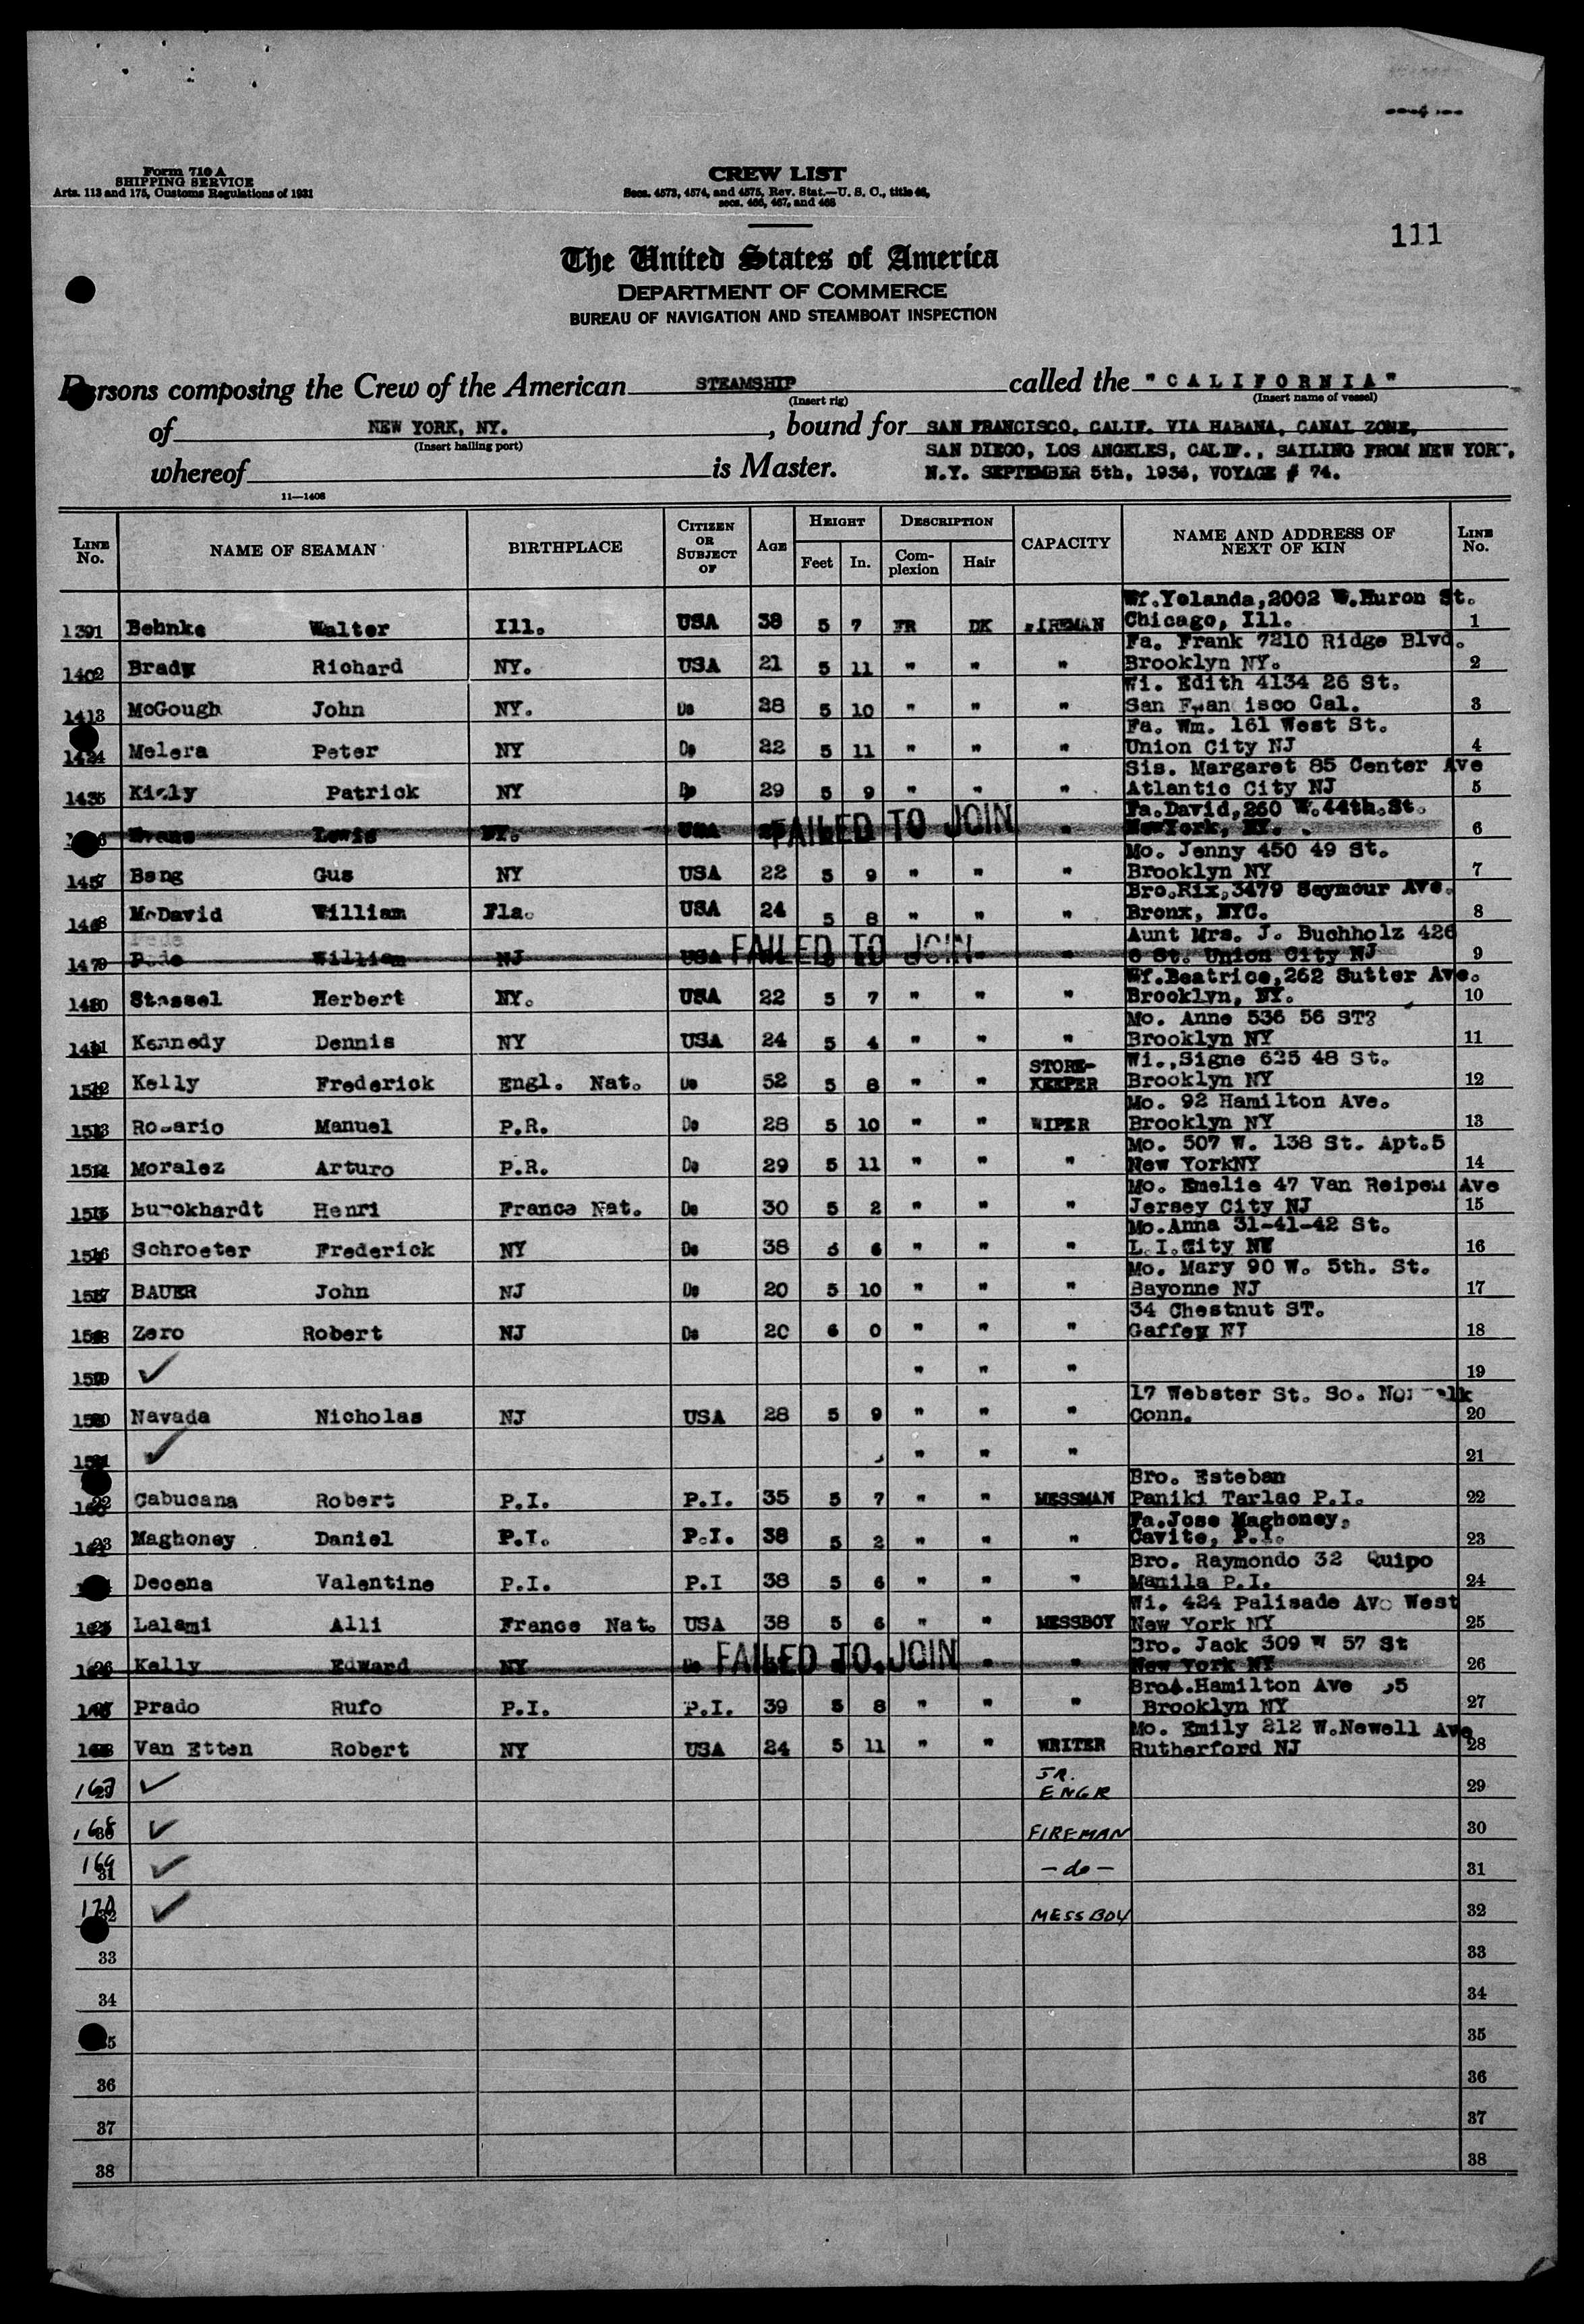 Form 710 A
SHIPPING SERVICE
Arts. 113 and 175, Customs Regulations of 1931
CREW LIST
Secs. 4573, 4574, and 4575, Rev. Stat.—U. S. C., title 46,
secs. 466, 467, and 468
111
The United States of America
DEPARTMENT OF COMMERCE
BUREAU OF NAVIGATION AND STEAMBOAT INSPECTION
Persons composing the Crew of the American STEAMSHIP called the "CALIFORNIA"
(Insert rig) (Insert name of vessel)
of NEW YORK, NY. , bound for SAN FRANCISCO, CALIF. VIA HABANA, CANAL ZONE,
(Insert hailing port)
SAN DIEGO, LOS ANGELES, CALIF., SAILING FROM NEW YORK,
whereof is Master. N.Y. SEPTEMBER 5th, 1936, VOYAGE # 74.
11—1408
LINE No. NAME OF SEAMAN BIRTHPLACE CITIZEN OR SUBJECT OF AGE HEIGHT Feet In. DESCRIPTION Complexion Hair CAPACITY NAME AND ADDRESS OF NEXT OF KIN LINE No.
Wf.Yolanda,2002 W.Huron St.
139 Behnke Walter Ill. USA 38 5 7 FR DK FIREMAN Chicago, Ill. 1
Fa. Frank 7210 Ridge Blvd.
140 Brady Richard NY. USA 21 5 11 " " " Brooklyn NY. 2
Wi. Edith 4134 26 St.
141 McGough John NY. Do 28 5 10 " " " San Francisco Cal. 3
Fa. Wm. 161 West St.
142 Melera Peter NY Do 22 5 11 " " " Union City NJ 4
Sis. Margaret 85 Center Ave
143 Patrick NY Do 29 5 9 " " " Atlantic City NJ 5
Fa.David,260 W.44th.St.
Evans Lewis NY. USA FAILED TO JOIN " NewYork, NY. 6
Mo. Jenny 450 49 St.
145 Bang Gus NY USA 22 5 9 " " " Brooklyn NY 7
Bro.Rix,3479 Seymour Ave.
146 McDavid William Fla. USA 24 5 8 " " " Bronx, NYC. 8
Aunt Mrs. J. Buchholz 426
147 William NJ USA FAILED TO JOIN " " St. Union City NJ 9
Wf.Beatrice,262 Sutter Ave.
148 Stassel Herbert NY. USA 22 5 7 " " " Brooklyn, NY. 10
Mo. Anne 536 56 ST?
Kennedy Dennis NY USA 24 5 4 " " " Brooklyn NY 11
STORE- Wi.,Signe 625 48 St.
Kelly Frederick Engl. Nat. Do 52 5 8 " " KEEPER Brooklyn NY 12
Mo. 92 Hamilton Ave.
Rosario Manuel P.R. Do 28 5 10 " " WIPER Brooklyn NY 13
Mo. 507 W. 138 St. Apt.5
Moralez Arturo P.R. Do 29 5 11 " " " New YorkNY 14
Mo. Emelie 47 Van Reipen Ave
Burckhardt Henri France Nat. Do 30 5 2 " " " Jersey City NJ 15
Mo.Anna 31-41-42 St.
Schroeter Frederick NY Do 38 6 " " " L.I.City NY 16
Mo. Mary 90 W. 5th. St.
BAUER John NJ Do 20 5 10 " " " Bayonne NJ 17
34 Chestnut ST.
Zero Robert NJ Do 20 6 0 " " " Gaffey NJ 18
✓ " " " 19
17 Webster St. So. Norwalk
Navada Nicholas NJ USA 28 5 9 " " " Conn. 20
✓ " " " 21
Bro. Esteban
Cabucana Robert P.I. P.I. 35 5 7 " " MESSMAN Paniki Tarlac P.I. 22
Fa.Jose Maghoney,
Maghoney Daniel P.I. P.I. 38 5 2 " " " Cavite, P.I. 23
Bro. Raymondo 32 Quipo
Decena Valentine P.I. P.I 38 5 6 " " " Manila P.I. 24
Wi. 424 Palisade Ave West
Lalami Alli France Nat. USA 38 5 6 " " MESSBOY New York NY 25
Bro. Jack 309 W 57 St
Kelly Edward NY Do FAILED TO JOIN " " New York NY 26
Bro.Hamilton Ave 5
Prado Rufo P.I. P.I. 39 5 8 " " " Brooklyn NY 27
Mo. Emily 212 W.Newell Ave
Van Etten Robert NY USA 24 5 11 " " WRITER Rutherford NJ 28
167 ✓ JR. ENGR 29
168 ✓ FIREMAN 30
169 31 ✓ —do— 31
170 ✓ MESSBOY 32
33 33
34 34
35
36 36
37 37
38 38